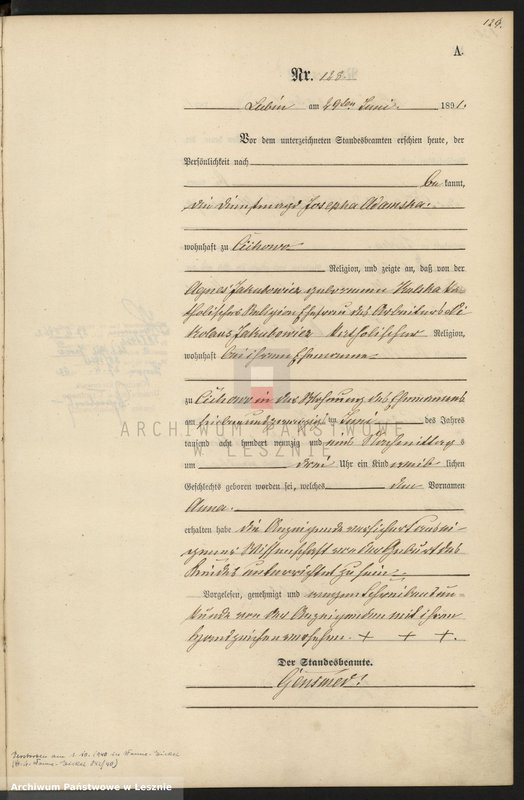 129.
A.
Nr. 128.
Lubin am 29ten Juni 1891.
Vor dem unterzeichneten Standesbeamten erschien heute, der
Persönlichkeit nach
be kannt,
die Dienstmagd Josepha Adamska.
wohnhaft zu Cichowo
Religion, und zeigte an, daß von der
Agnes Jakubowicz geborenen Walska ka-
tholischer Religion Ehefrau des Arbeiters Ni-
kolaus Jakubowicz katholischer Religion,
wohnhaft bei ihrem Ehemanne
zu Cichowo in der Wohnung des Ehemannes
am sieben und zwanzigsten Juni des Jahres
tausend acht hundert neunzig und eins Nachmittags
um drei Uhr ein Kind weib lichen
Geschlechts geboren worden sei, welches den Vornamen
Anna.
erhalten habe die Anzeigende versichert aus ei-
gener Wissenschaft von der Geburt des
Kindes unterrichtet zu sein.
Vorgelesen, genehmigt und wegen Schreibensun-
kunde von der Anzeigenden mit ihren
Handzeichen versehen. + + +.
Der Standesbeamte.
Gensmer
ARCHIWUM PAŃSTWOWE
W LESZNIE
Verstorben am 1. 10. 1940 in Wanne-Eickel
Archiwum Państwowe w Lesznie